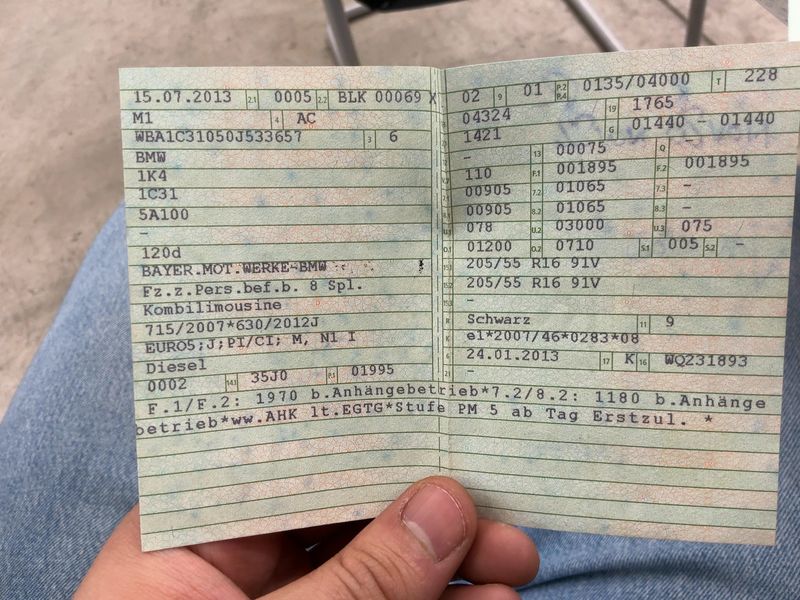 15.07.2013 2.1 0005 2.2 BLK 00069 X
M1 4 AC
WBA1C31050J533657 3 6
BMW
1K4
1C31
5A100
–
120d
BAYER.MOT.WERKE-BMW
Fz.z.Pers.bef.b. 8 Spl.
Kombilimousine
715/2007*630/2012J
EURO5;J;PI/CI; M, N1 I
Diesel
0002 14.1 35J0 P.1 01995
02 9 01 P.2 P.4 0135/04000 T 228
04324 19 1765
1421 G 01440 – 01440
– 13 00075 Q –
110 F.1 001895 F.2 001895
00905 7.2 01065 7.3 –
00905 8.2 01065 8.3 –
078 U.2 03000 U.3 075
O.1 01200 O.2 0710 S.1 005 S.2 –
15.1 205/55 R16 91V
15.2 205/55 R16 91V
15.3 –
R Schwarz 11 9
K e1*2007/46*0283*08
6 24.01.2013 17 K 16 WQ231893
21 –
F.1/F.2: 1970 b.Anhängebetrieb*7.2/8.2: 1180 b.Anhänge
betrieb*ww.AHK lt.EGTG*Stufe PM 5 ab Tag Erstzul. *